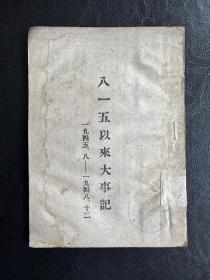 八一五以來大事記
一九四五、八——一九四八、十二